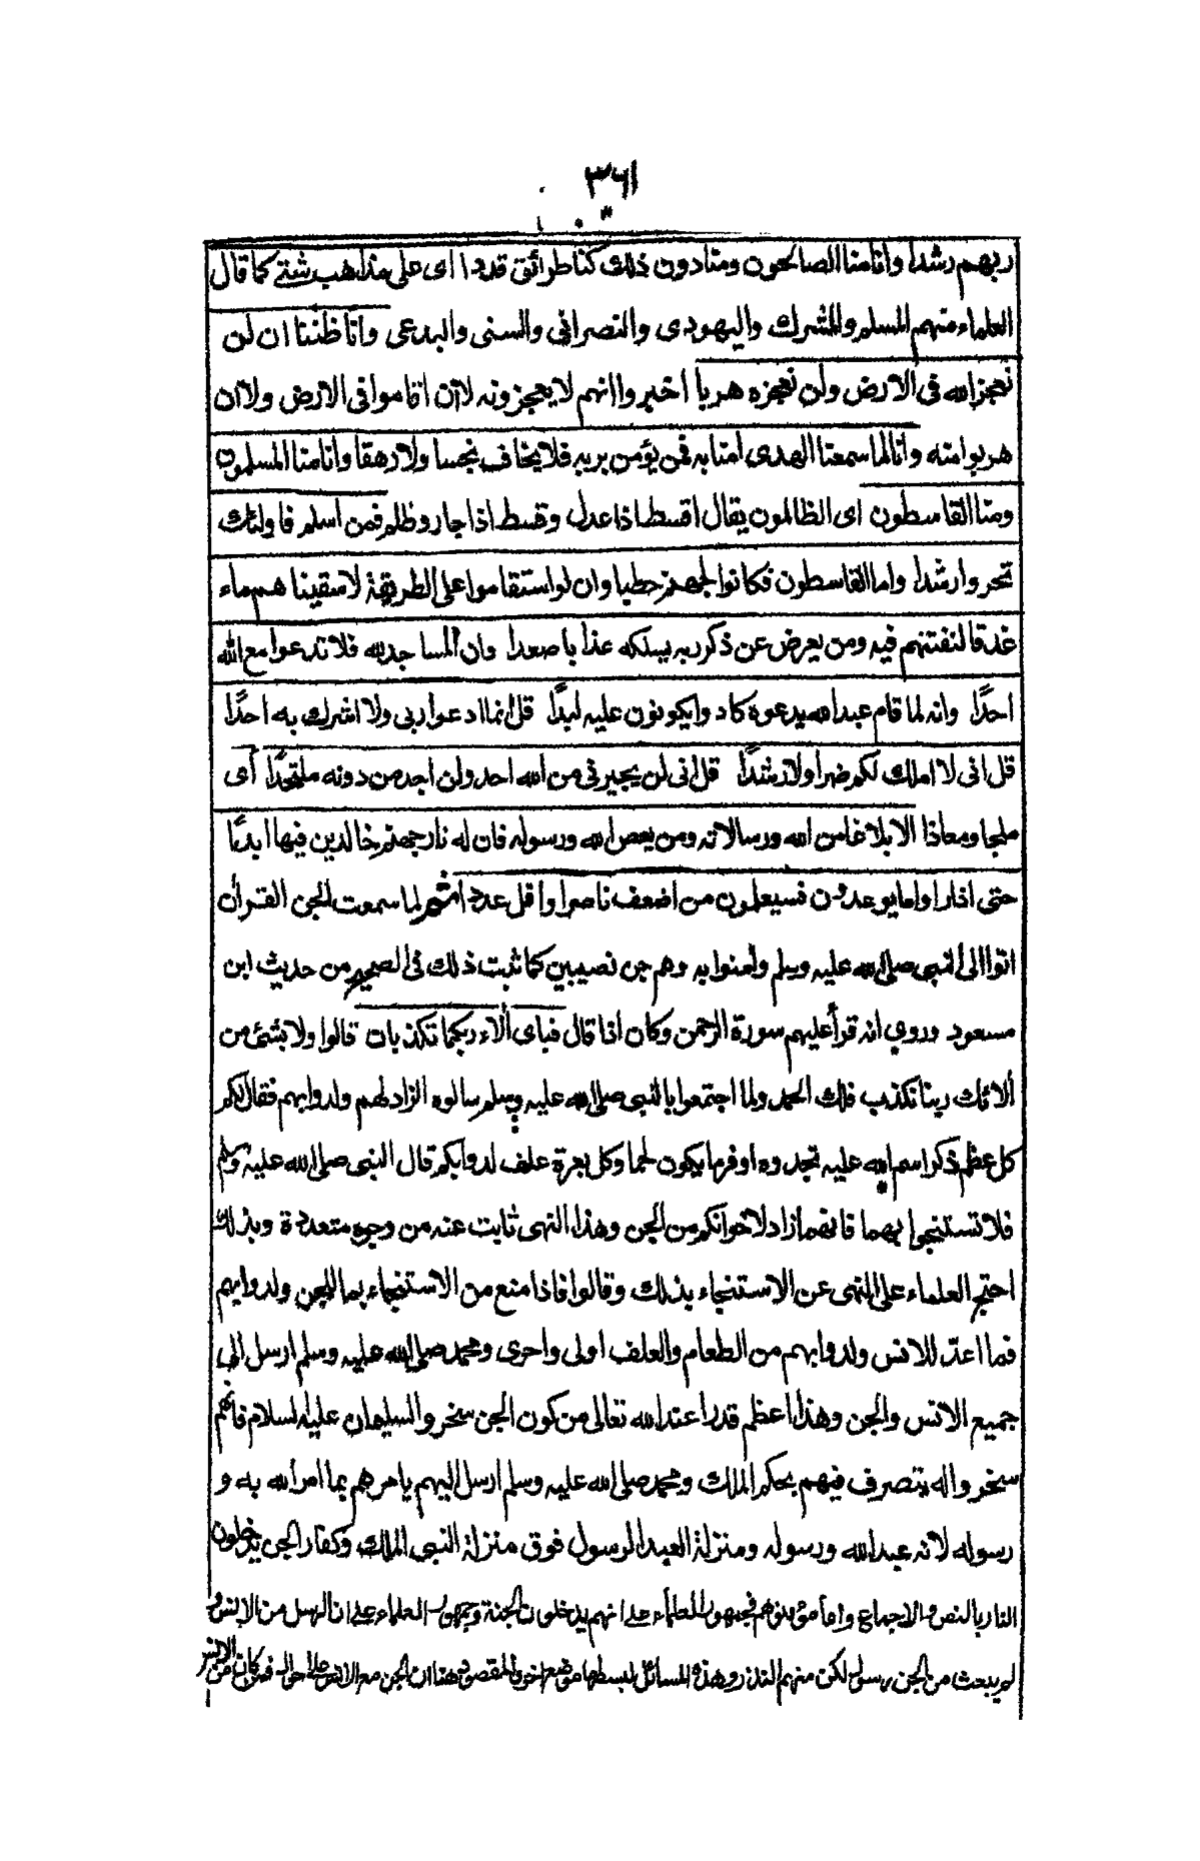 ٣٦١
ربهم رشدا وانا منا الصالحون ومنا دون ذلك كنا طرائق قددا اى على مذاهب شتى كما قال
العلماء منهم المسلم والمشرك واليهودى والنصرانى والسنى والبدعى وانا ظننا ان لن
نعجز الله فى الارض ولن نعجزه هربا اخبروا انهم لا يعجزونه لا ان اقاموا فى الارض ولا ان
هربوا منه وانا لما سمعنا الهدى امنا به فمن يؤمن بربه فلا يخاف بخسا ولا رهقا وانا منا المسلمون
ومنا القاسطون اى الظالمون يقال اقسط اذا عدل وقسط اذا جار وظلم فمن اسلم فاولئك
تحروا رشدا واما القاسطون فكانوا لجهنم حطبا وان لو استقاموا على الطريقة لاسقيناهم ماء
غدقا لنفتنهم فيه ومن يعرض عن ذكر ربه يسلكه عذابا صعدا وان المساجد لله فلا تدعوا مع الله
احدًا وانه لما قام عبد الله يدعوه كادوا يكونون عليه لبدًا قل انما ادعوا ربى ولا اشرك به احدًا
قل انى لا املك لكم ضرا ولا رشدًا قل انى لن يجيرنى من الله احد ولن اجد من دونه ملتحدًا أى
ملجا ومعاذا الا بلاغا من الله ورسالاته ومن يعص الله ورسوله فان له نار جهنم خالدين فيها ابدًا
حتى اذا راوا ما يوعدون فسيعلمون من اضعف ناصرا واقل عددا ثم لما سمعت الجن القرآن
اتوا الى النبى صلى الله عليه وسلم وآمنوا به وهم جن نصيبين كما ثبت ذلك فى الصحيح من حديث ابن
مسعود وروي انه قرأ عليهم سورة الرحمن وكان اذا قال فباى ألاء ربكما تكذبان قالوا ولا بشئ من
ألائك ربنا نكذب فلك الحمد ولما اجتمعوا بالنبى صلى الله عليه وسلم سالوه الزاد لهم ولدوابهم فقال لكم
كل عظم ذكر اسم الله عليه تجدوه اوفر ما يكون لحما وكل بعرة علف لدوابكم قال النبى صلى الله عليه وسلم
فلا تستنجوا بهما فانهما زاد لاخوانكم من الجن وهذا النهى ثابت عنه من وجوه متعددة وبذلك
احتج العلماء على النهى عن الاستنجاء بذلك وقالوا فاذا منع من الاستنجاء بما للجن ولدوابهم
فما اعدّ للانس ولدوابهم من الطعام والعلف اولى واحرى ومحمد صلى الله عليه وسلم ارسل الى
جميع الانس والجن وهذا اعظم قدرا عند الله تعالى من كون الجن سخروا لسليمان عليه السلام فانهم
سخروا له يتصرف فيهم بحكم الملك ومحمد صلى الله عليه وسلم ارسل اليهم يامرهم بما امر الله به و
رسوله لانه عبد الله ورسوله ومنزلة العبد الرسول فوق منزلة النبى الملك وكفار الجن يدخلون
النار بالنص والاجماع واما مؤمنوهم فجمهور العلماء على انهم يدخلون الجنة وجمهور العلماء على ان الرسل من الانس و
لم يبعث من الجن رسول لكن منهم النذر وهذه المسائل لبسطها موضع اخر والمقصود هنا ان الجن مع الانس على احوال فمن كان من الانس